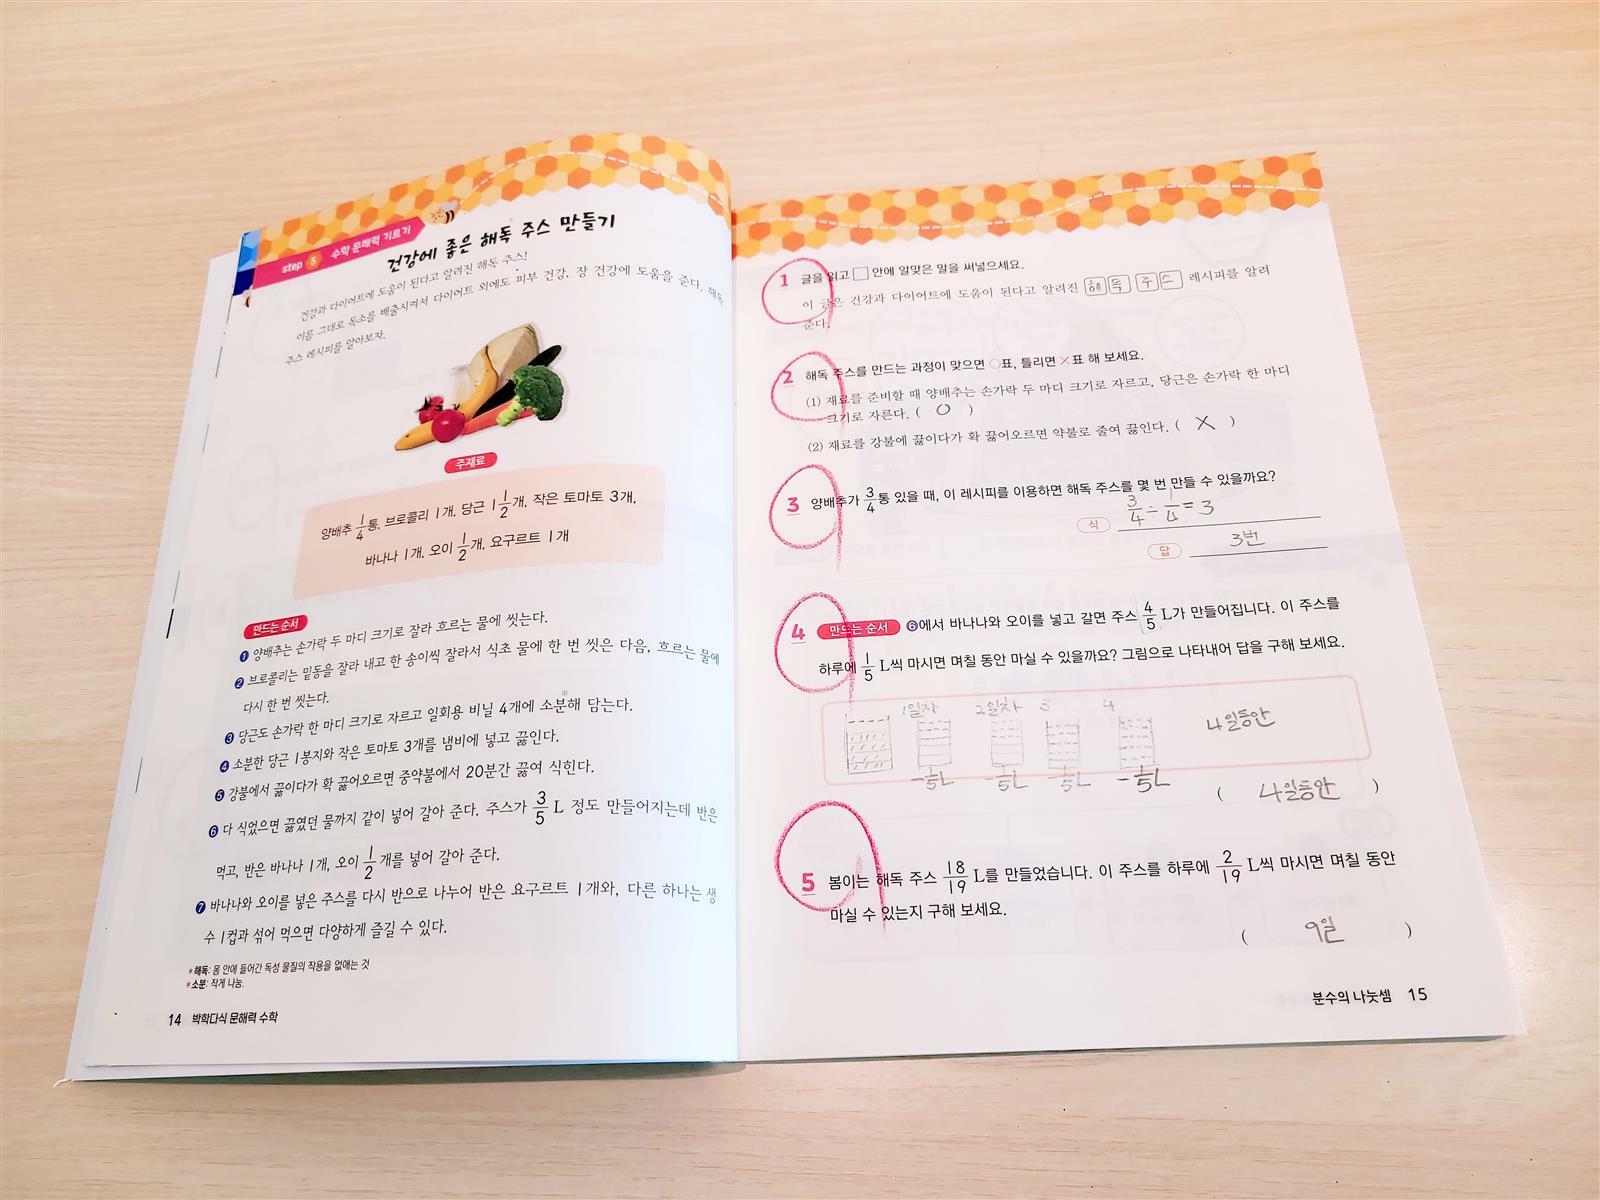 step 5 수학 문해력 기르기
건강에 좋은 해독* 주스 만들기
건강과 다이어트에 도움이 된다고 알려진 해독 주스!
이름 그대로 독소를 배출시켜서 다이어트 외에도 피부 건강, 장 건강에 도움을 준다. 해독
주스 레시피를 알아보자.
주재료
양배추 1/4통, 브로콜리 1개, 당근 1 1/2개, 작은 토마토 3개,
바나나 1개, 오이 1/2개, 요구르트 1개
만드는 순서
❶ 양배추는 손가락 두 마디 크기로 잘라 흐르는 물에 씻는다.
❷ 브로콜리는 밑동을 잘라 내고 한 송이씩 잘라서 식초 물에 한 번 씻은 다음, 흐르는 물에
다시 한 번 씻는다.
❸ 당근도 손가락 한 마디 크기로 자르고 일회용 비닐 4개에 소분*해 담는다.
❹ 소분한 당근 1봉지와 작은 토마토 3개를 냄비에 넣고 끓인다.
❺ 강불에서 끓이다가 확 끓어오르면 중약불에서 20분간 끓여 식힌다.
❻ 다 식었으면 끓였던 물까지 같이 넣어 갈아 준다. 주스가 3/5 L 정도 만들어지는데 반은
먹고, 반은 바나나 1개, 오이 1/2개를 넣어 갈아 준다.
❼ 바나나와 오이를 넣은 주스를 다시 반으로 나누어 반은 요구르트 1개와, 다른 하나는 생
수 1컵과 섞어 먹으면 다양하게 즐길 수 있다.
*해독: 몸 안에 들어간 독성 물질의 작용을 없애는 것
*소분: 작게 나눔.
14 박학다식 문해력 수학
1 글을 읽고 □ 안에 알맞은 말을 써넣으세요.
이 글은 건강과 다이어트에 도움이 된다고 알려진 해독 주스 레시피를 알려
준다.
2 해독 주스를 만드는 과정이 맞으면 ○표, 틀리면 ×표 해 보세요.
(1) 재료를 준비할 때 양배추는 손가락 두 마디 크기로 자르고, 당근은 손가락 한 마디
크기로 자른다. ( O )
(2) 재료를 강불에 끓이다가 확 끓어오르면 약불로 줄여 끓인다. ( X )
3 양배추가 3/4통 있을 때, 이 레시피를 이용하면 해독 주스를 몇 번 만들 수 있을까요?
식 3/4 ÷ 1/4 = 3
답 3번
4 만드는 순서 ❻에서 바나나와 오이를 넣고 갈면 주스 4/5 L가 만들어집니다. 이 주스를
하루에 1/5 L씩 마시면 며칠 동안 마실 수 있을까요? 그림으로 나타내어 답을 구해 보세요.
1일차 2일차 3 4
4일동안
-1/5L -1/5L -1/5L -1/5L
( 4일동안 )
5 봄이는 해독 주스 18/19 L를 만들었습니다. 이 주스를 하루에 2/19 L씩 마시면 며칠 동안
마실 수 있는지 구해 보세요.
( 9일 )
분수의 나눗셈 15